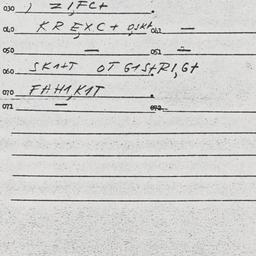 030 ) ZI,FC+
040 KRE,XC+ O,SK+. 041 —
050 — 051 —
060 SK1+T OT G1S+RI,G+
070 FAH1,K1T
071 — 072